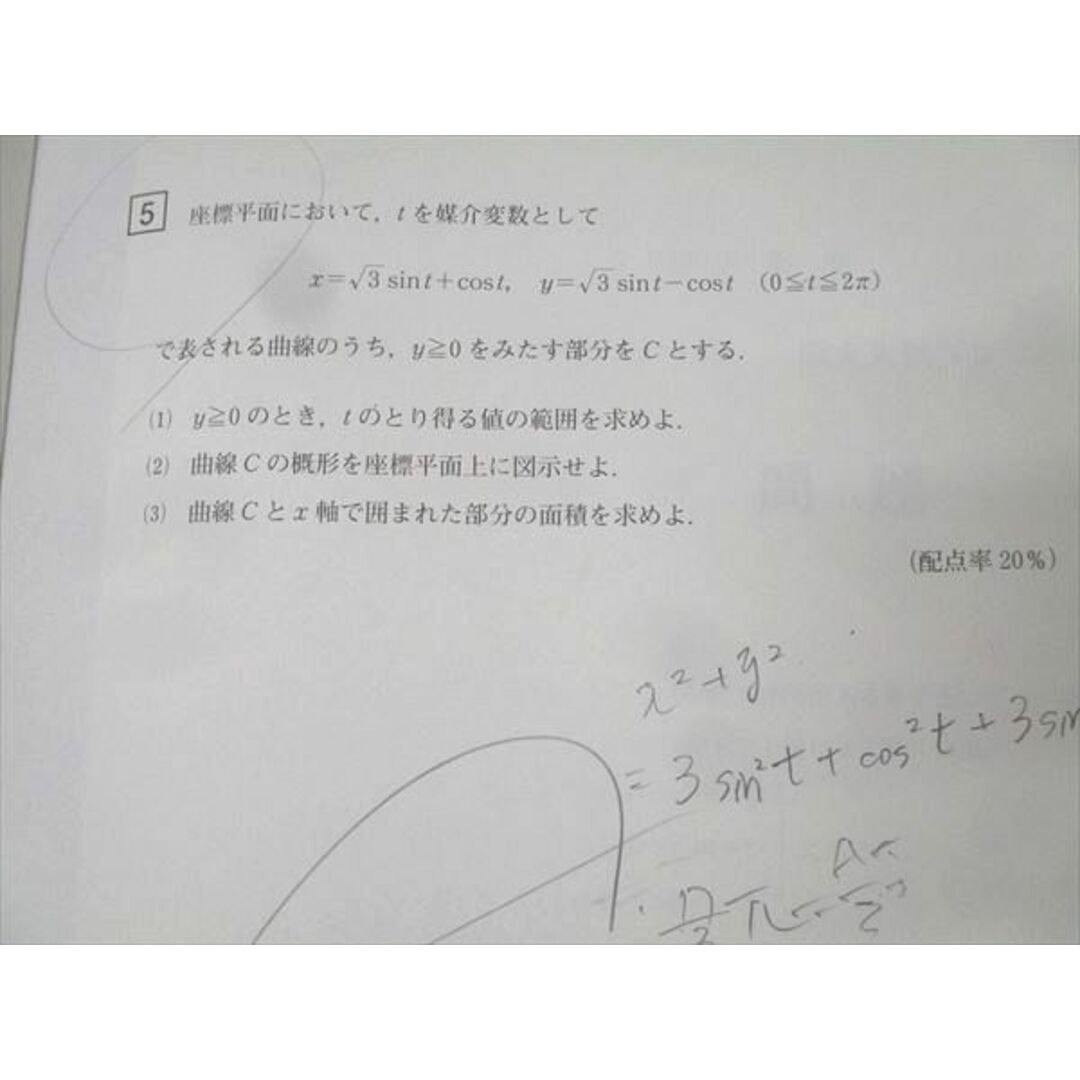 5 座標平面において，tを媒介変数として
x=√3 sint+cost, y=√3 sint−cost (0≦t≦2π)
で表される曲線のうち，y≧0をみたす部分をCとする．
(1) y≧0のとき，tのとり得る値の範囲を求めよ．
(2) 曲線Cの概形を座標平面上に図示せよ．
(3) 曲線Cとx軸で囲まれた部分の面積を求めよ．
(配点率20%)
x²+y²
= 3 sin²t + cos²t + 3 sin